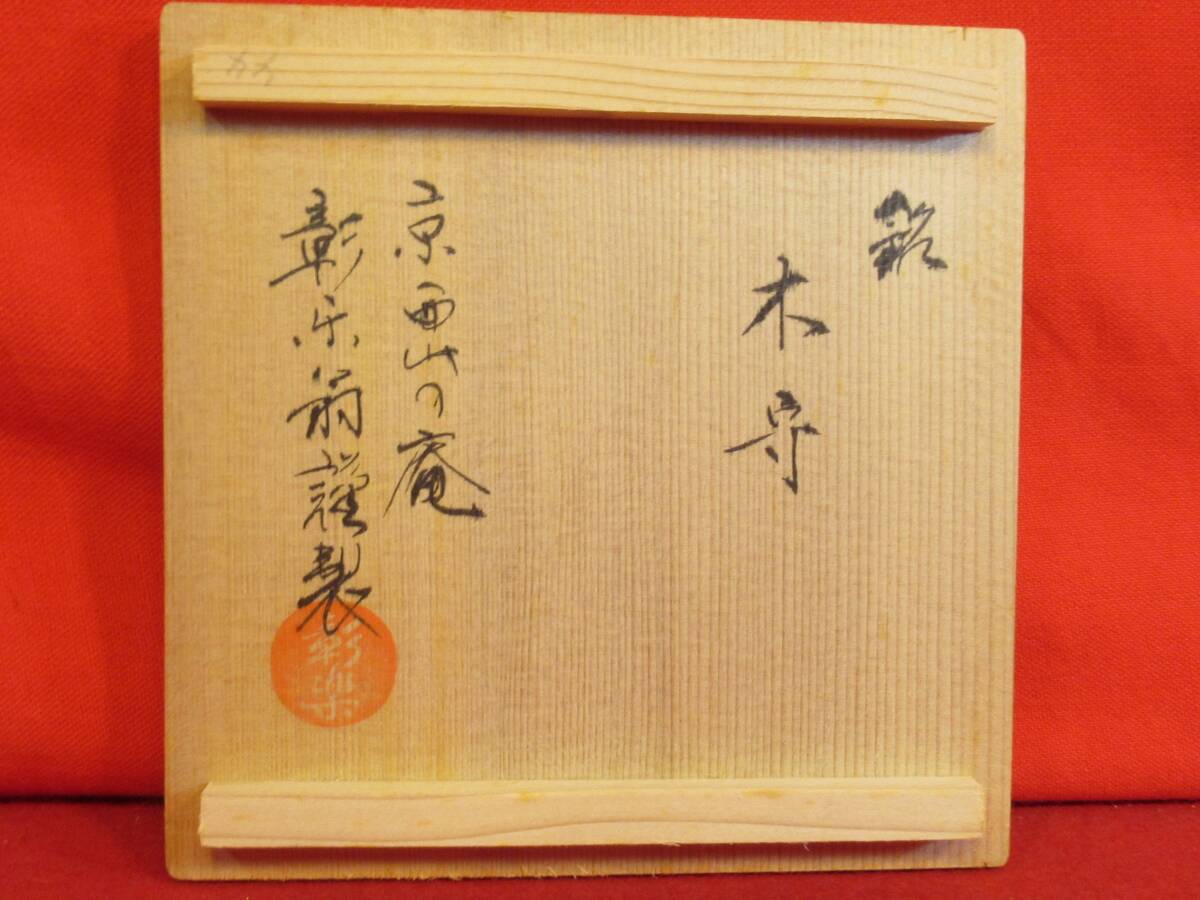 銘
木守
京西山の庵
彰楽翁謹製
彰楽